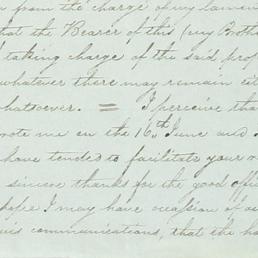 from the charge of my lamen
that the Bearer of this (my Broth
taking charge of the said prop
whatever there may remain eit
whatsoever. = I perceive tha
wrote me on the 16th June and
have tended to facilitate your
sincere thanks for the good offi
hope I may have occasion of
his communications, that the ha